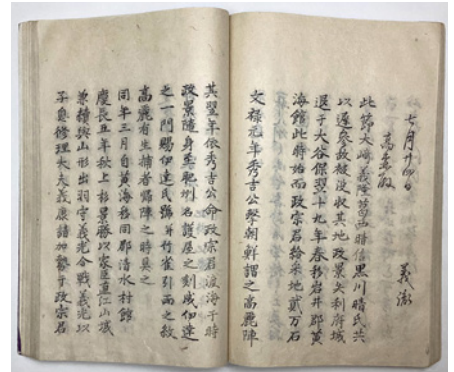 七月廿四日
義
高森殿
此節大崎義隆葛西晴信黒川晴氏共
以遅参故被没収其地政景失利府城
退于大谷保翌十九年春移岩井郡黄
海館此時始而政宗君給采地貳万石
文禄元年秀吉公撃朝鮮謂之高麗陣
其翌年依秀吉公命政宗君渡海于時
政景随身至肥州名護屋之刻成伊達
之一門賜伊達氏号并竹雀引両之紋
高麗有生捕者帰陣之時具之
同年三月自黄海移同郡清水村館
慶長五年秋上杉景勝以家臣直江山城
兼續與山形出羽守義光合戦義光以
子息修理大夫義康請加勢于政宗君